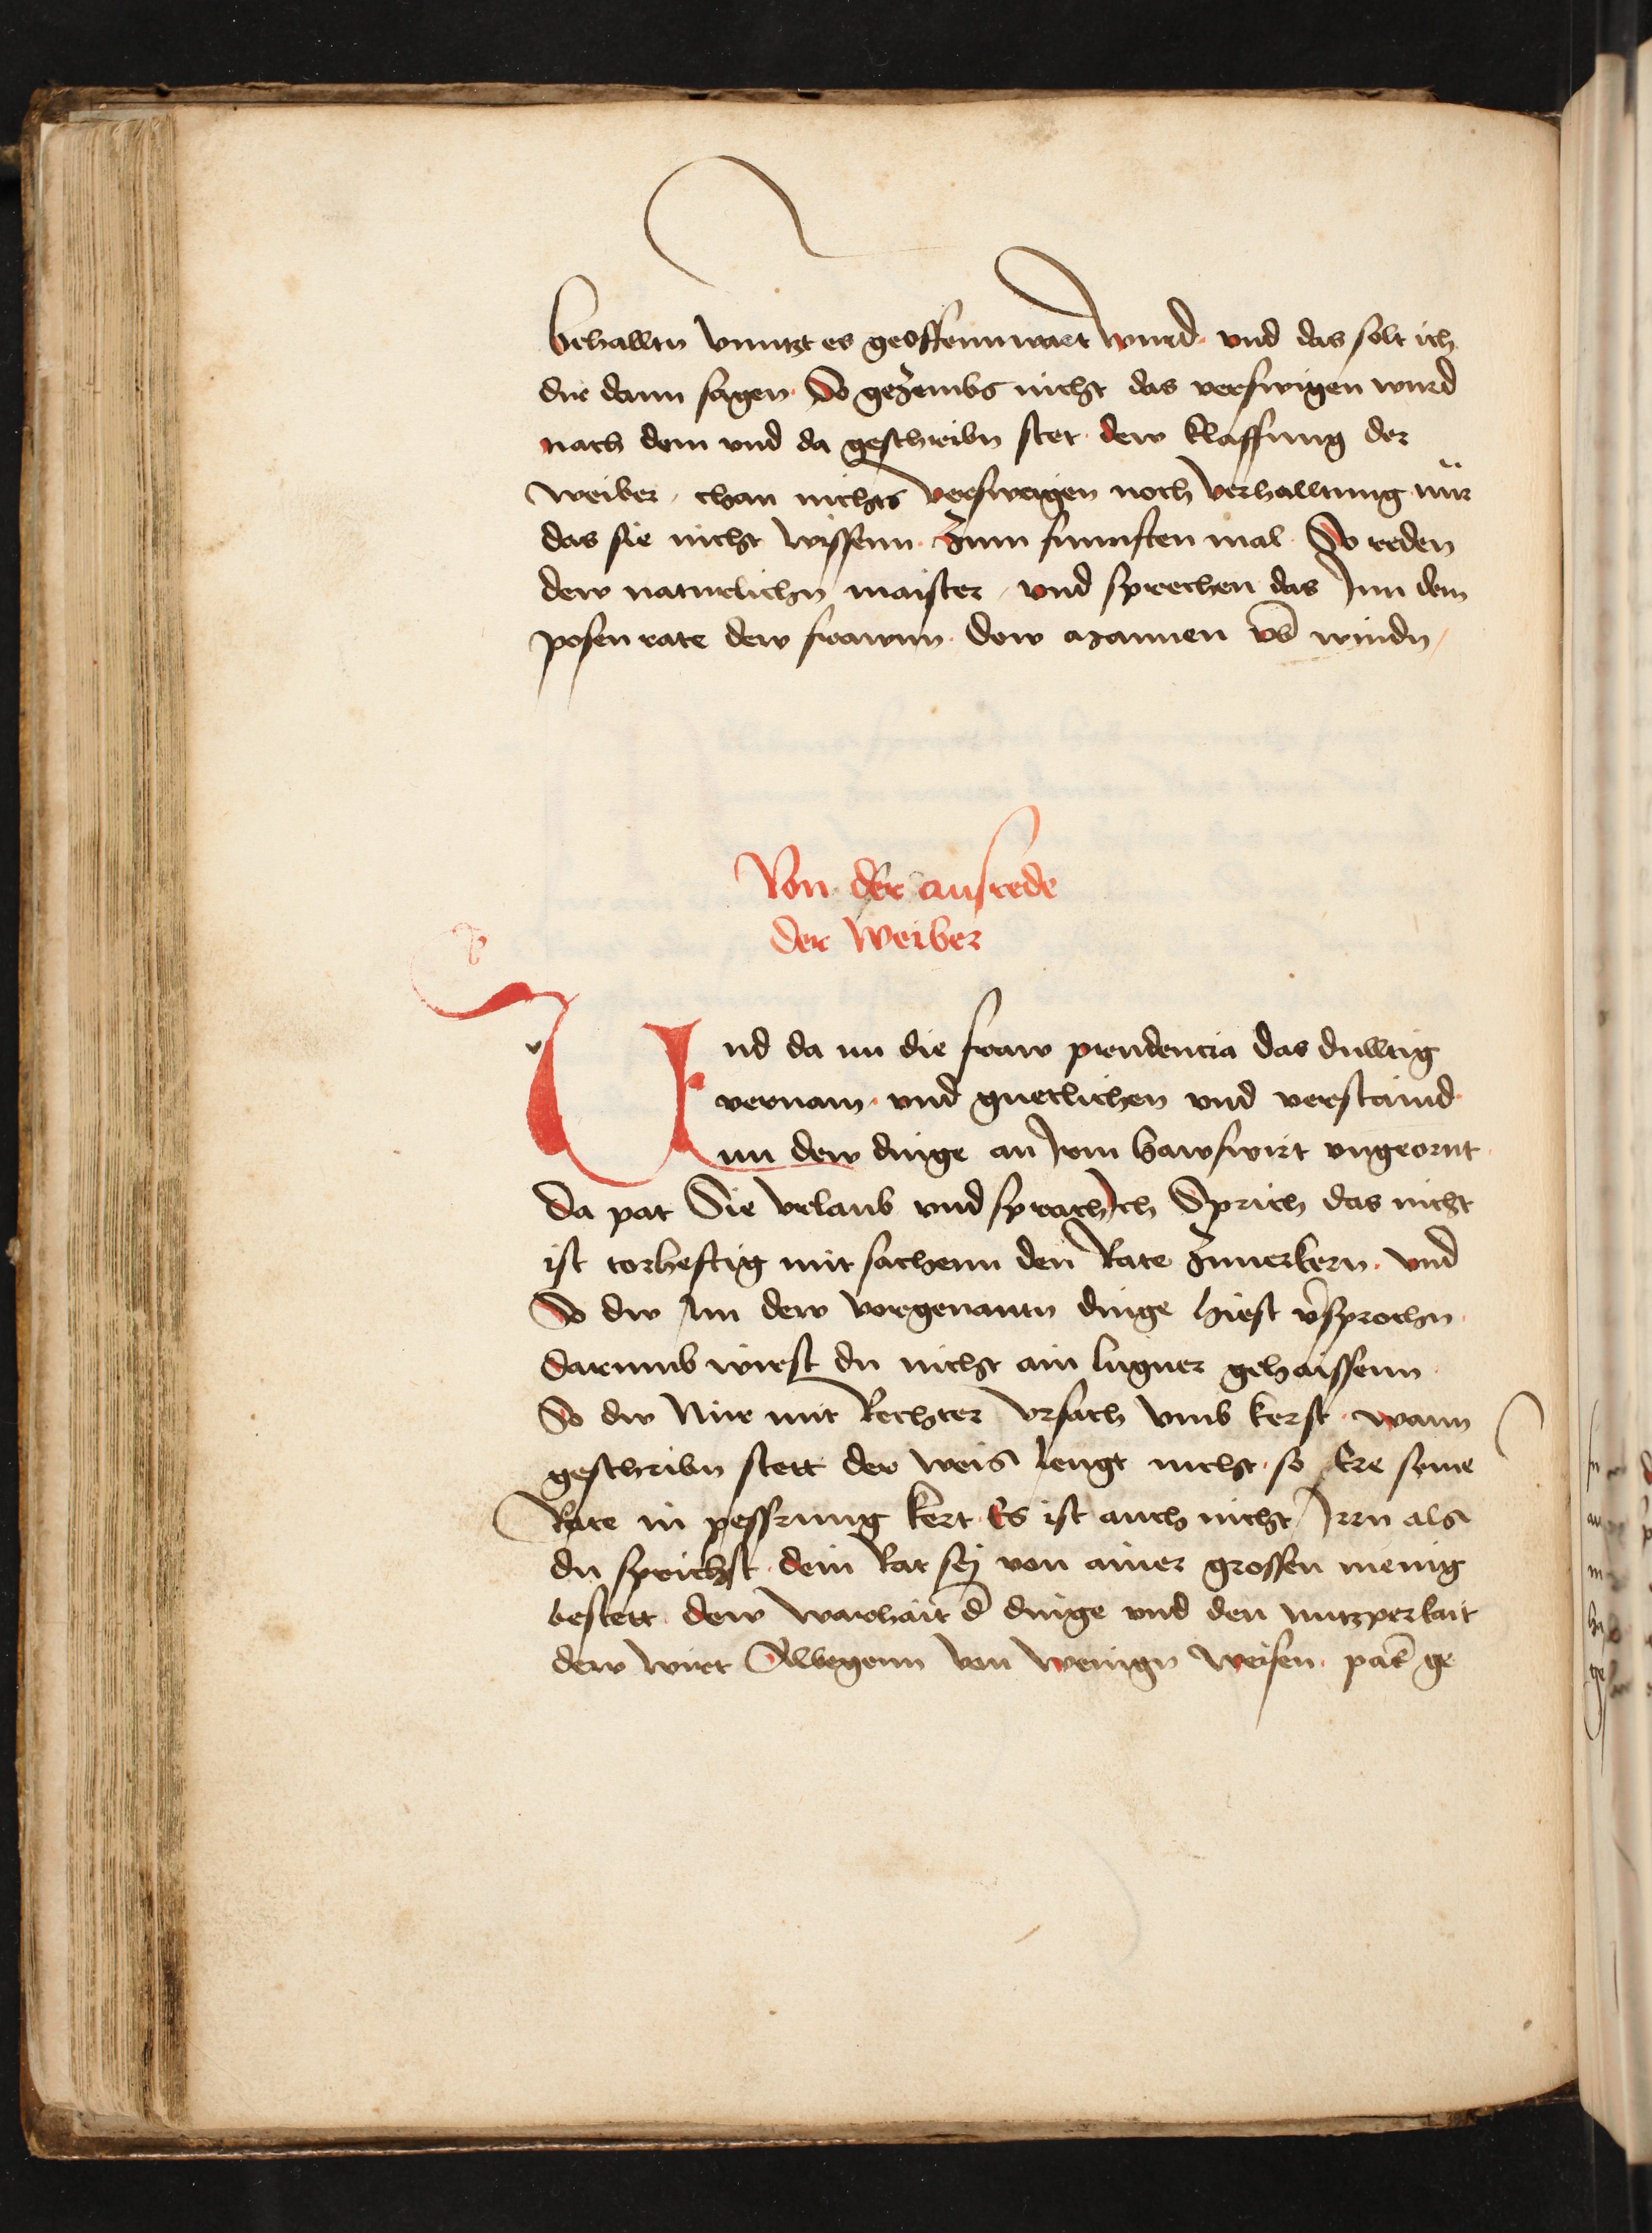 behalltn vnntzt es geoffennwart wurd · vnd das solt ich
dir dann sagen · So gezembs nicht das verswigen wurd
nach dem vnd da geschribn stet · dew klaffung der
weiber · chan nichts versweigen noch verhalltung nür
das sie nicht wissenn · Zum funnften mal · So reden
dew naturlichn maister · vnd sprechen das Inn dem
posen rate dew frawnn · dew mannen vb windn /
Von der ausrede
der Weiber
Vnd da nu die fraw prudencia das dulltig
vernam · vnd guetlichen vnd verstaind
nn dew dinge an Irm hawswirt vngeornt ·
Da pat Sie vrlaub vnd sprach Ich Sprich das nicht
ist torheftig mit sachenn den Rate Zuuerkern · vnd
So dw Im dew vorgenantn dinge hiest vˀsprochn ·
darumb wirst du nicht ain lugner gehaissenn ·
So dw Nur mit Rechter vrsach vmb kerst · wann
geschribn stett der weis leugt nicht · so Ere seine
Rate in pessrung kert · Es ist auch nicht Irrn als
du sprichst · dein Rat sej von ainer grossen menig
bestett · dew warhait d dinge vnd den nutzperkait
dew wirt Allbegenn von wenign weisen · pas ge